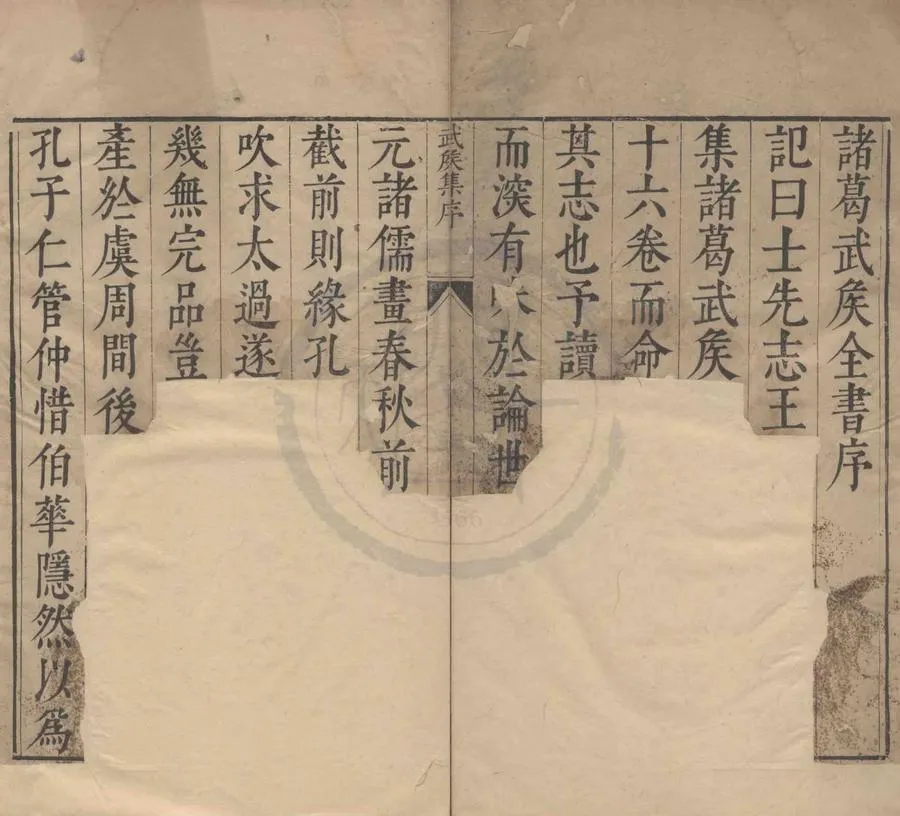 諸葛武矦全書序
記曰士先志王
集諸葛武矦
十六卷而命
其志也予讀
而深有味於論世
武矦集序
元諸儒畫春秋前
截前則緣孔
吹求太過遂
幾無完品豈
產於虞周間後
孔子仁管仲惜伯華隱然以為